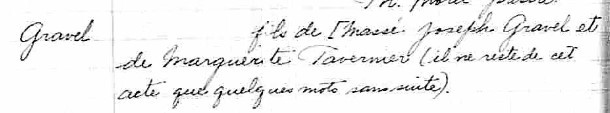 Gravel fils de Imassé Joseph Gravel et
de Marguerite Tavernier (il ne reste de cet
acte que quelques mots sans suite).